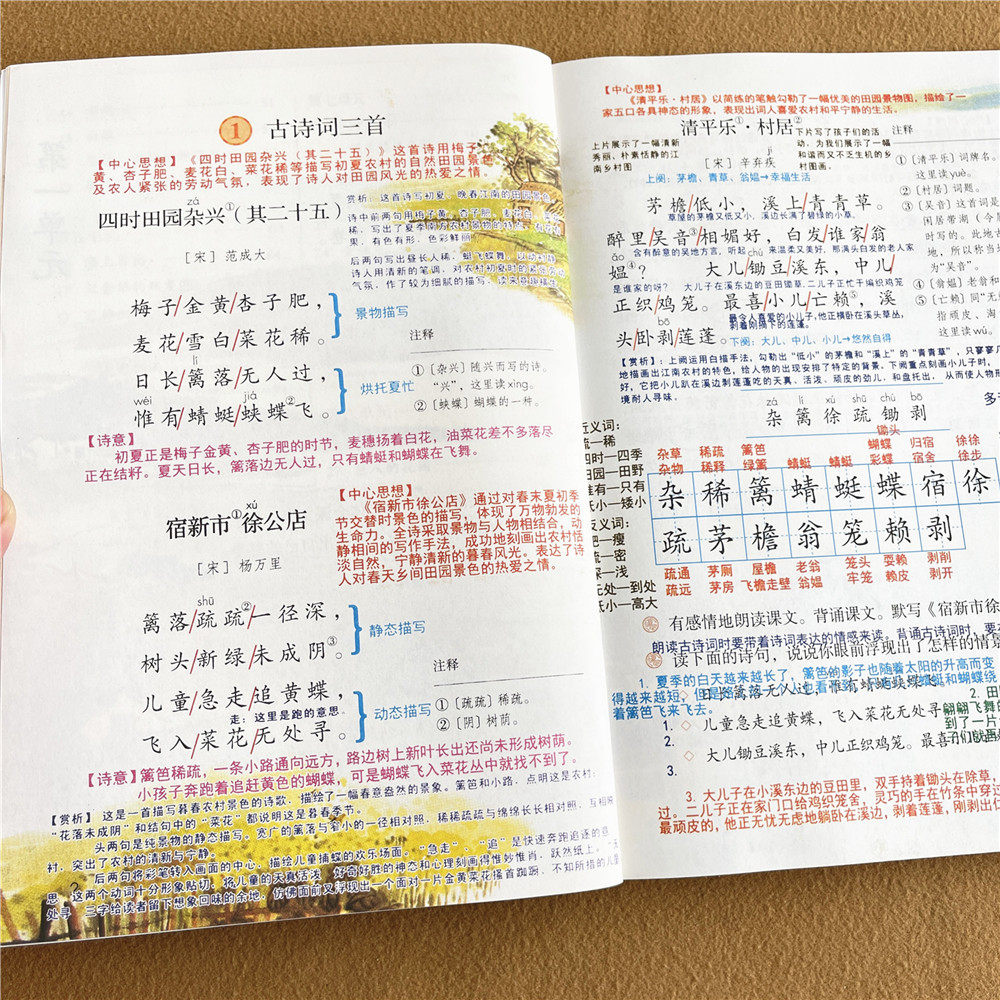 1 古诗词三首
【中心思想】《四时田园杂兴（其二十五）》这首诗用梅子
黄、杏子肥、麦花白、菜花稀等描写初夏农村的自然田园景色
及农人紧张的劳动气氛，表现了诗人对田园风光的热爱之情。
zá
四时田园杂兴①（其二十五）
［宋］范成大
赏析：诗人描写初夏、晚春江南的田园景色。
诗中前两句用梅子黄、杏子肥、麦花白、菜花
稀，写出了夏季南方农村景物的特点，有花有
果，有色有形，色彩鲜丽。
后两句写出昼长人稀，蜓飞蝶舞，以动衬静。
诗人用清新的笔调，对农村初夏时的紧张劳动
气氛，作了较为细腻的描写，读来意趣横生。
梅子/金黄/杏子肥，
麦花/雪白/菜花稀。
景物描写
lí
日长/篱落/无人过，
wéi jiá
惟有/蜻蜓/蛱蝶②飞。
烘托夏忙
注释
①〔杂兴〕随兴而写的诗。
“兴”，这里读xìng。
②〔蛱蝶〕蝴蝶的一种。
【诗意】
初夏正是梅子金黄、杏子肥的时节，麦穗扬着白花，油菜花差不多落尽
正在结籽。夏天日长，篱落边无人过，只有蜻蜓和蝴蝶在飞舞。
xú
宿新市①徐公店
［宋］杨万里
【中心思想】
《宿新市徐公店》通过对春末夏初季
节交替时景色的描写，体现了万物勃发的
生命力。全诗采取景物与人物相结合，动
静相间的写作手法，成功地刻画出农村恬
淡自然，宁静清新的暮春风光。表达了诗
人对春天乡间田园景色的热爱之情。
shū
篱落/疏疏②/一径深，
树头/新绿/未成阴③。
静态描写
儿童/急走/追黄蝶，
走：这里是跑的意思。
飞入/菜花/无处寻。
动态描写
注释
①〔疏疏〕稀疏。
②〔阴〕树荫。
【诗意】篱笆稀疏，一条小路通向远方，路边树上新叶长出还尚未形成树荫。
小孩子奔跑着追赶黄色的蝴蝶，可是蝴蝶飞入菜花丛中就找不到了。
【赏析】 这是一首描写暮春农村景色的诗歌，描绘了一幅春意盎然的景象。篱笆和小路，点明这是农村：
“花落未成阴”和结句中的“菜花”都说明这是暮春季节。
头两句是纯景物的静态描写。宽广的篱落与窄小的一径相对照，稀稀疏疏与绵绵长长相对照，互相映
衬，突出了农村的清新与宁静。
后两句将彩笔转入画面的中心，描绘儿童捕蝶的欢乐场面。“急走”、“追”是快速奔跑追逐的意
思，这两个动词十分形象贴切，将儿童的天真活泼、好奇好胜的神态和心理刻画得惟妙惟肖，跃然纸上。“无
处寻”三字给读者留下想象回味的余地，仿佛面前又浮现出一个面对一片金黄菜花搔首踟蹰、不知所措的儿童
2
【中心思想】
《清平乐·村居》以简练的笔触勾勒了一幅优美的田园景物图，描绘了一
家五口各具神态的形象，表现出词人喜爱农村和平宁静的生活。
清平乐①·村居②
［宋］辛弃疾
上片展示了一幅清新
秀丽、朴素恬静的江
南乡村图
下片写了孩子们的活
动，为我们展示了一幅
和谐而又不乏生机的乡
村图画。
上阕：茅檐、青草、翁媪→幸福生活
茅檐/低小，溪上/青青草。
草屋的茅檐又低又小，溪边长满了碧绿的小草。
醉里吴音③/相媚好，白发/谁家/翁
含有醉意的吴地方言，听起 来温柔又美好，那满头白发的老人家
ǎo
媪④？ 大儿/锄豆/溪东，中儿/
是谁家的呀？ 大儿子在溪东边的豆田锄草，二儿子正忙于编织鸡笼
正织/鸡笼。最喜/小儿/亡赖⑤，溪
最令人喜爱的小儿子，他正横卧在溪头草丛，
剥着刚摘下的莲蓬。
bō
头/卧剥/莲蓬。
下阕：大儿、中儿、小儿→悠然自得
注释
①〔清平乐〕词牌名。
②〔村居〕词题。
③〔吴音〕这首词是
④〔翁媪〕老翁和
⑤〔亡赖〕同“无
这里读wú。
【赏析】：上阕运用白描手法，勾勒出“低小”的茅檐和“溪上”的“青青草”，只寥寥几
地描画出江南农村的特色，给人物的出现安排了特定的背景。下阕重点刻画小儿子时，
好，它把小儿趴在溪边剥莲蓬吃的天真、活泼、顽皮的劲儿，和盘托出，从而使人物形
境耐人寻味。
zá lí xú shū chú bō
杂 篱 徐 疏 锄 剥
锄头
四时—四季
田园—田野
惟有—只有
低小—矮小
反义词：
肥—瘦
疏—密
深—浅
无处—到处
低小—高大
杂草 稀疏 篱笆 蝴蝶 归宿 徐徐
杂物 稀释 绿篱 蜻蜓 蜻蜓 彩蝶 宿舍 徐步
杂 稀 篱 蜻 蜓 蝶 宿 徐
疏 茅 檐 翁 笼 赖 剥
疏通 茅厕 屋檐 老翁 笼头 耍赖 剥削
疏远 茅房 飞檐走壁 翁媪 牢笼 赖皮 剥开
有感情地朗读课文。背诵课文。默写《宿新市徐
朗读古诗词时要带着诗词表达的情感来读。背诵古诗词时，要
读下面的诗句，说说你眼前浮现出了怎样的情景
1. 夏季的白天越来越长了，篱笆的影子也随着太阳的升高而变
1. 日长篱落无人过，惟有蜻蜓蛱蝶飞。
着篱笆飞来飞去。
◇ 儿童急走追黄蝶，飞入菜花无处寻。
2.
◇ 大儿锄豆溪东，中儿正织鸡笼。最喜
3.
3. 大儿子在小溪东边的豆田里，双手持着锄头在除草，
过。二儿子正在家门口给鸡织笼舍，灵巧的手在竹条中穿过
最顽皮的，他正无忧无虑地躺卧在溪边，剥着莲蓬，刚剥出仁